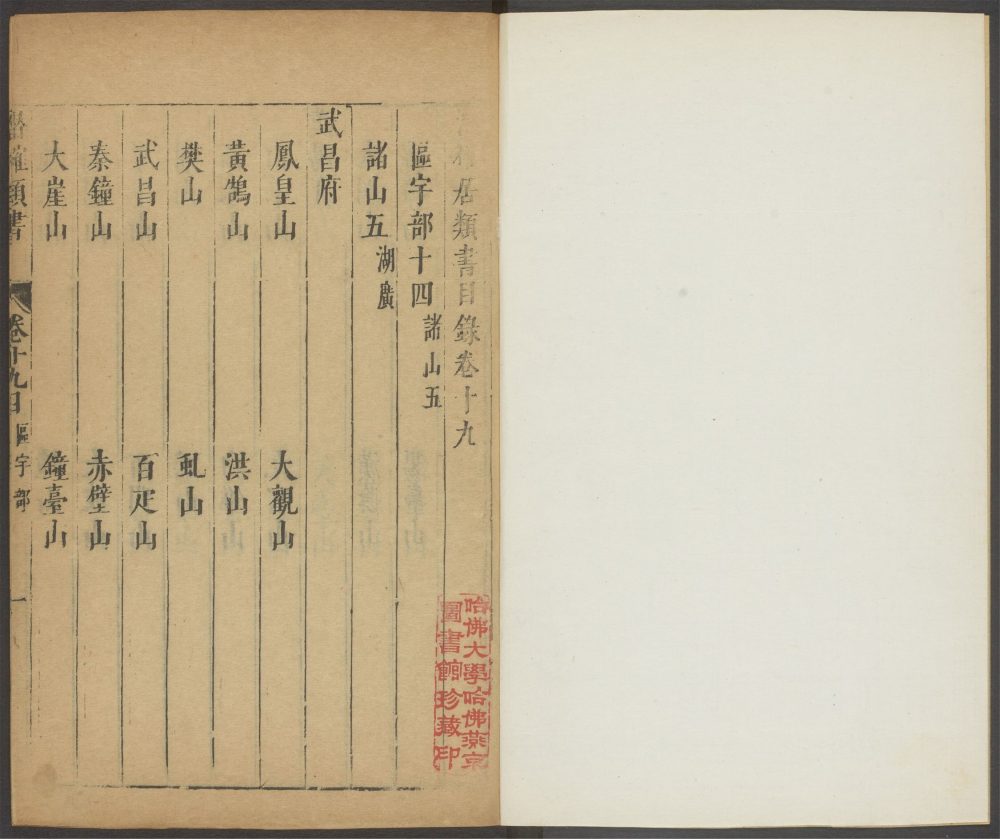 居類書目錄卷十九
區宇部十四 諸山五
諸山五 湖廣
武昌府
鳳皇山 大觀山
黃鵠山 洪山
樊山 虬山
武昌山 百疋山
秦鐘山 赤壁山
大崖山 鐘臺山
潛確類書 卷十九目 區宇部 一
哈佛大學哈佛燕京
圖書館珍藏印